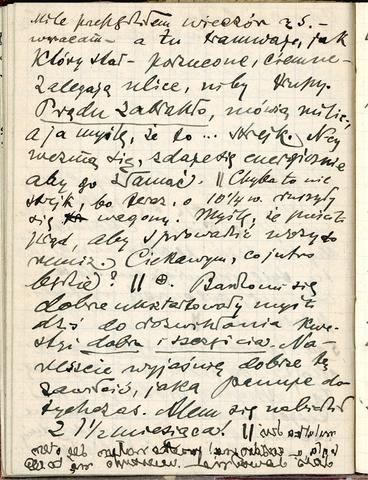 Mile przepędziłem wieczór z S. –
wracam – a tu tramwaje, jak
który stał – porzucone, ciemne –
zalegają ulice, niby trupy.
Prądu zabrakło, mówią milic.,
a ja myślę, że to ... strejk. Nzy
wezmą się, zdaje się energicznie
aby go złamać. || Chyba to nie
strejk, bo teraz, o 10¼ w. ruszyły
się wagony. Myślę, że puścili
prąd, aby sprowadzić wozy do
remiz. Ciekawym, co jutro
będzie? || ⊕. Bardzo mi się
dobrze ukształtowały myśli
dziś do rozwikłania kwe-
styi dobra i szczęścia. Na-
reszcie wyjaśnię dobrze tę
zawiłość, jaka panuje do-
tychczas. Alem się nabiedził
2 1½ miesiąca! ||